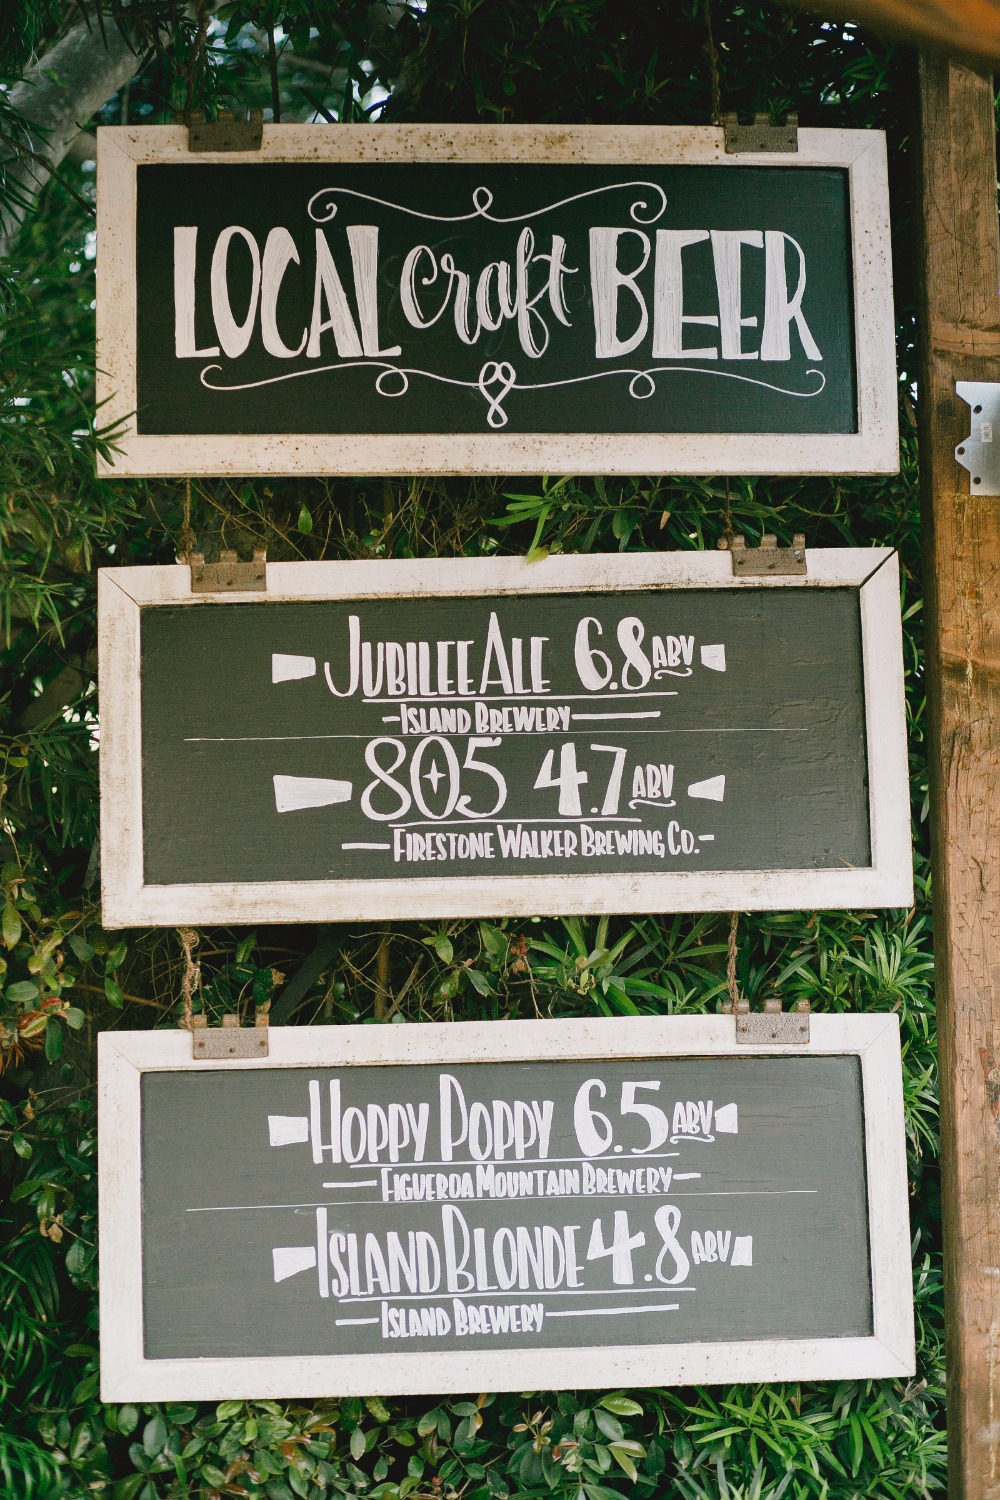 LOCAL craft BEER
JUBILEE ALE 6.8 ABV
ISLAND BREWERY
805 4.7 ABV
FIRESTONE WALKER BREWING CO.
HOPPY POPPY 6.5 ABV
FIGUEROA MOUNTAIN BREWERY
ISLAND BLONDE 4.8 ABV
ISLAND BREWERY